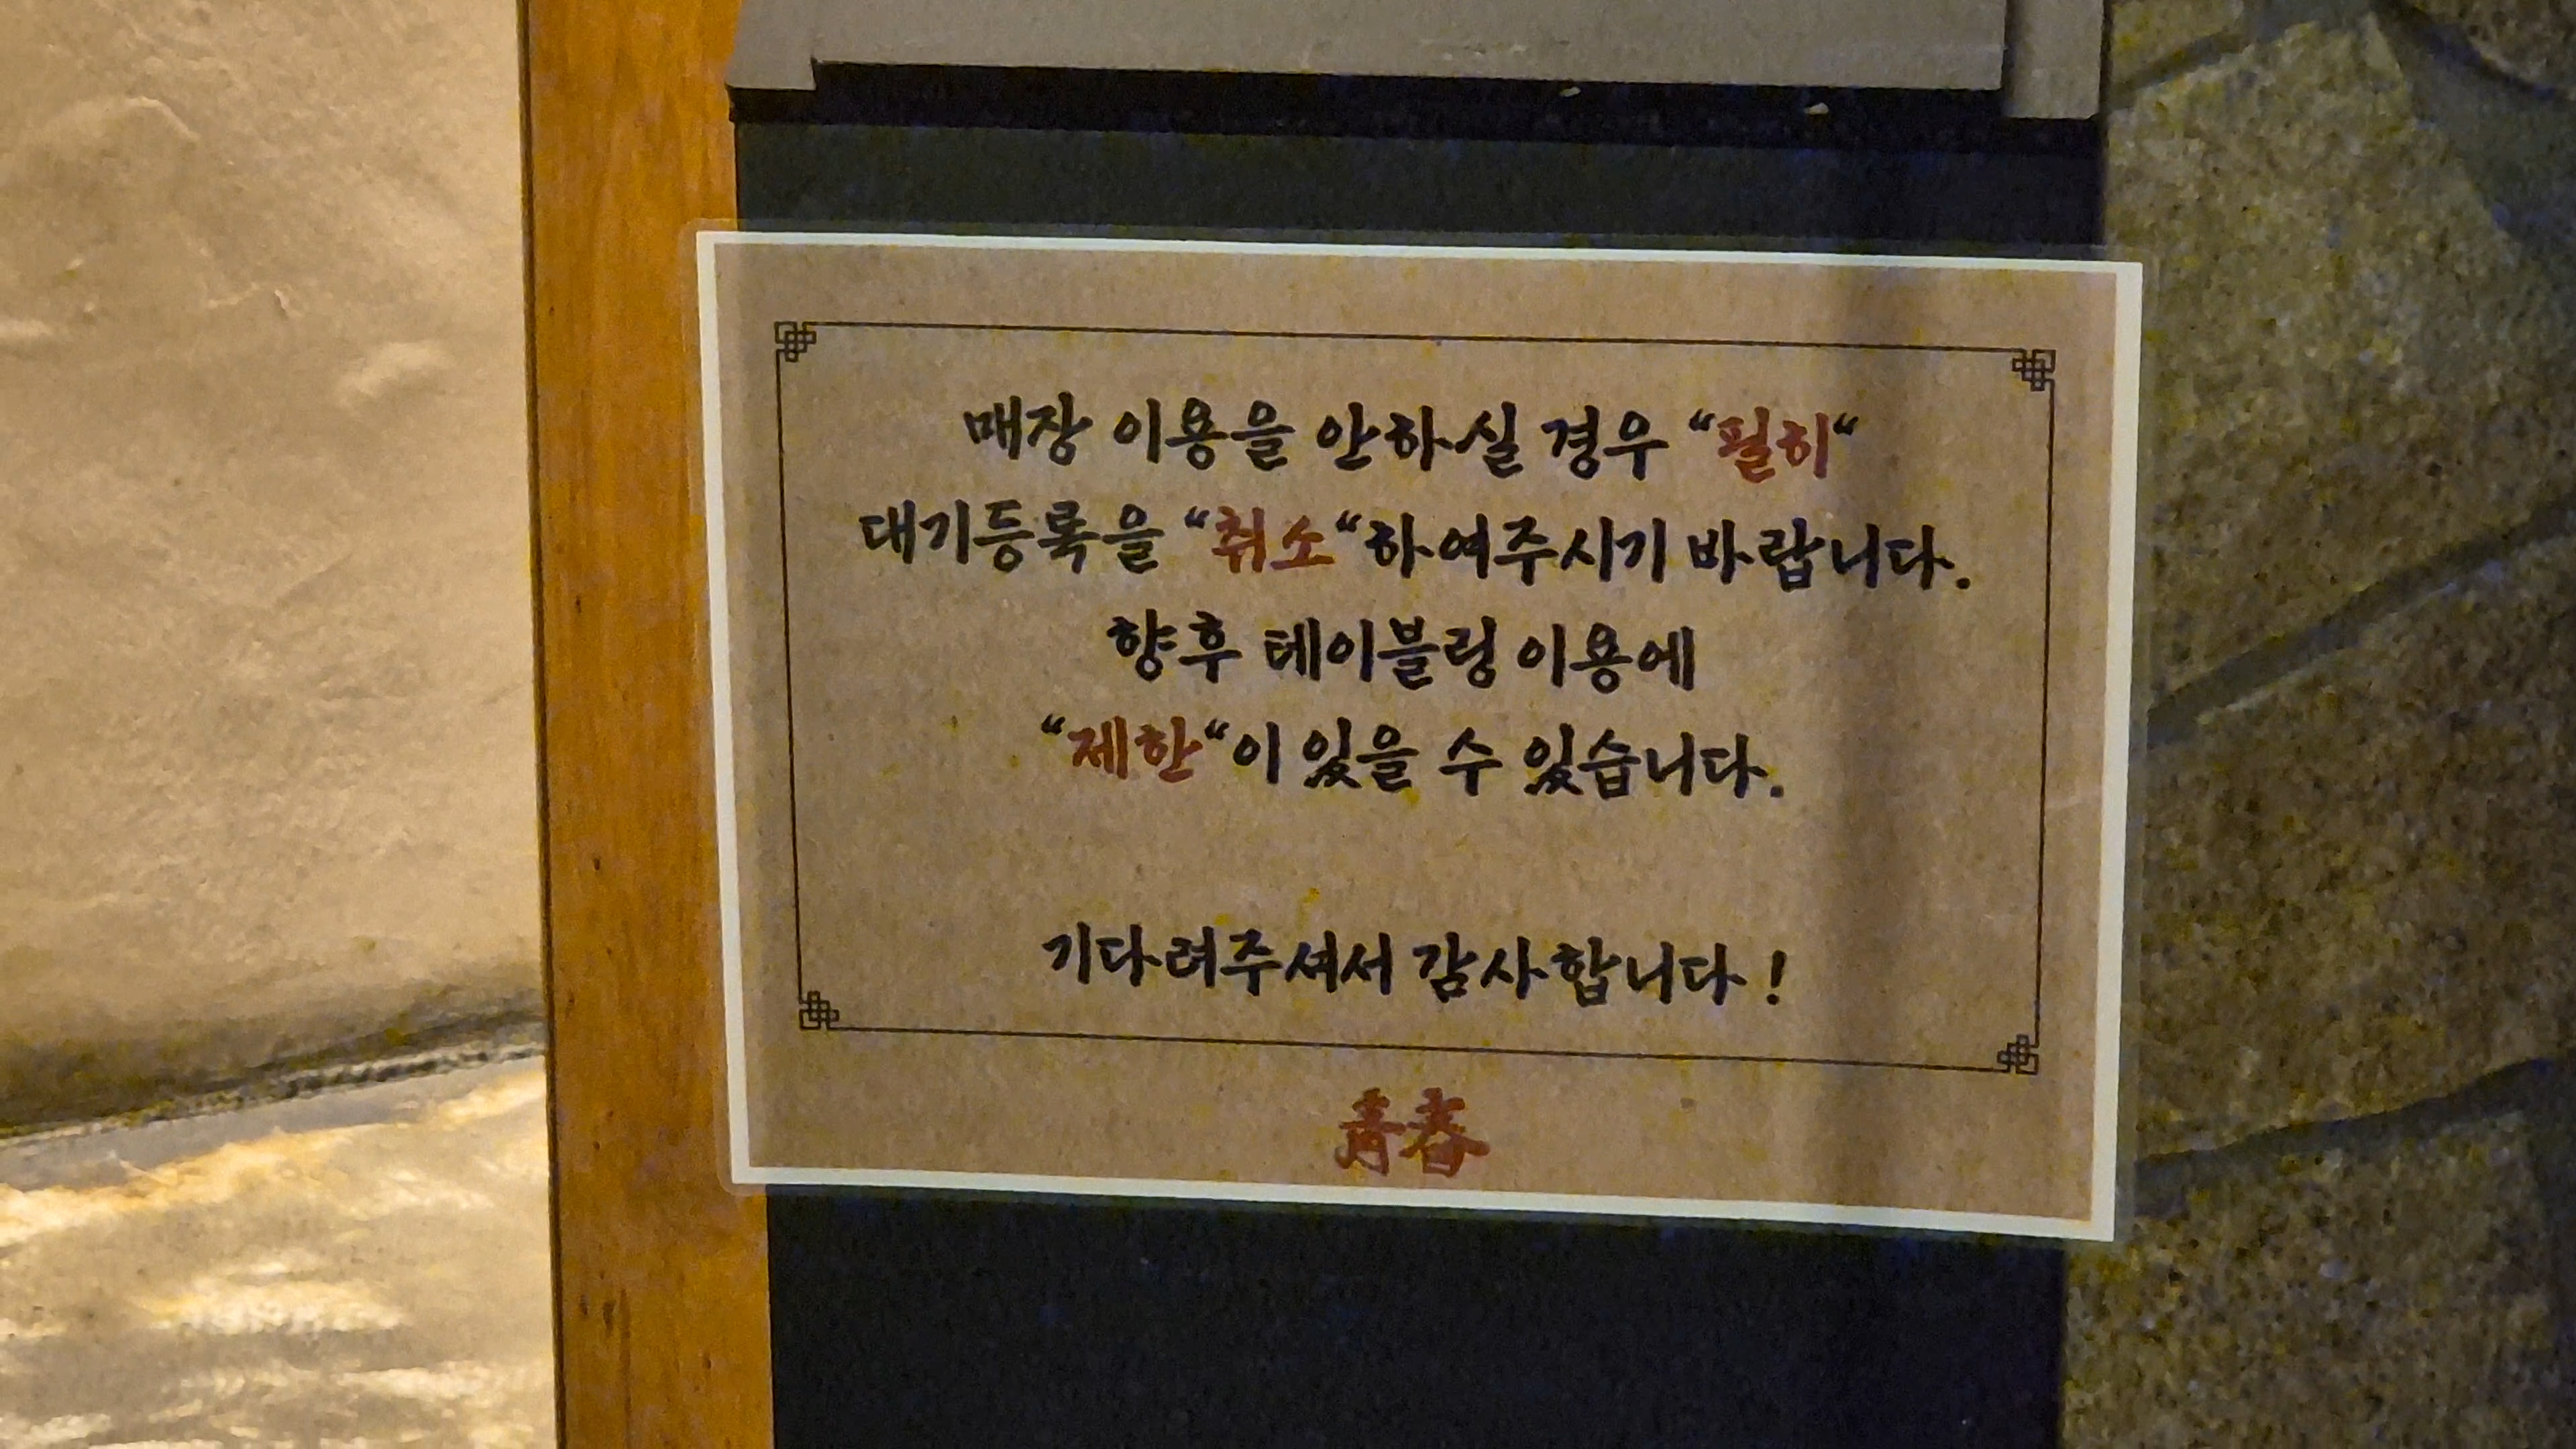 매장 이용을 안하실 경우 “필히“
대기등록을 “취소“하여주시기 바랍니다.
향후 테이블링 이용에
“제한“이 있을 수 있습니다.
기다려주셔서 감사합니다!
青春